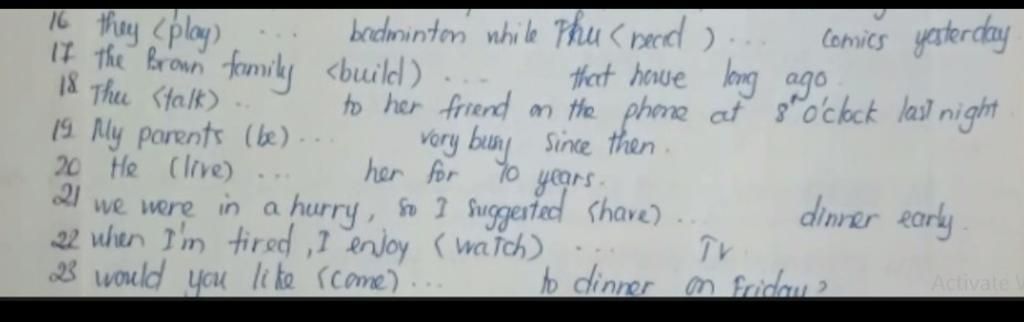 16 they (play) ... badminton while Thu (read) ... comics yesterday.
17 the Brown family (build) .... that house long ago.
18 Thu (talk) .. to her friend on the phone at 8 o'clock last night.
19 My parents (be) ... very busy since then.
20 He (live) ... her for 10 years.
21 we were in a hurry, so I suggested (have) ... dinner early.
22 when I'm tired, I enjoy (watch) ... TV.
23 would you like (come) ... to dinner on Friday?
Activate